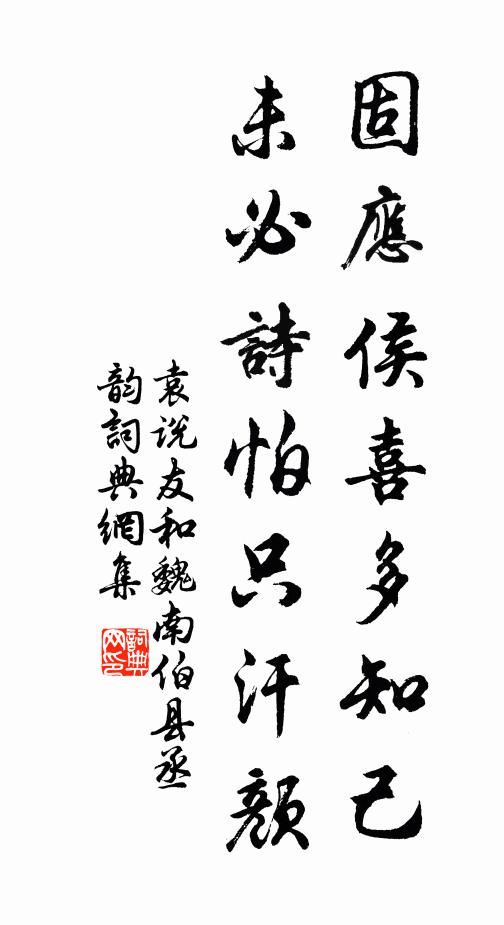 固應侯喜多知己
未必詩怕只汗顏
袁说友和魏南伯县丞
韵詞典網集
詞典
网印